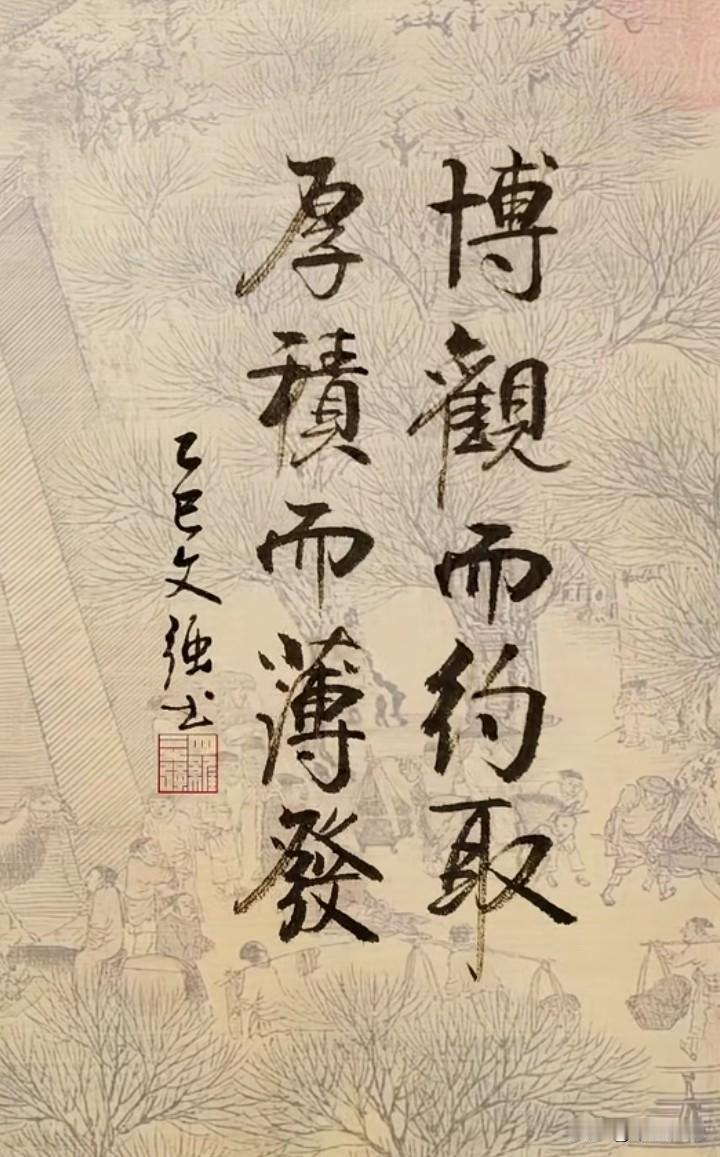 博觀而約取
厚積而薄發
乙巳文強书